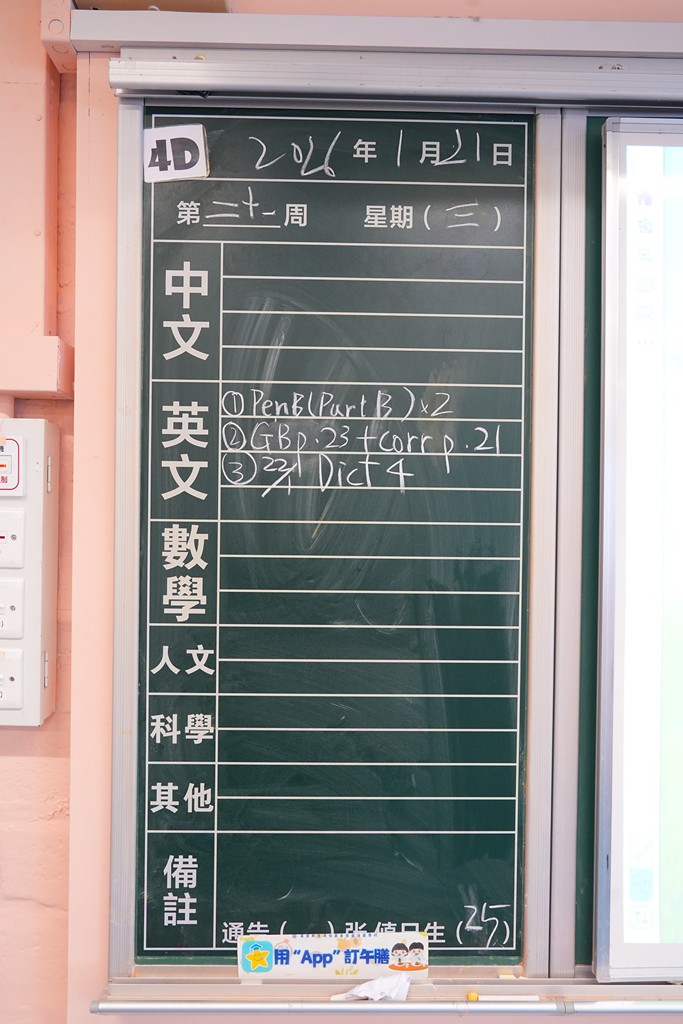 4D
2026年1月21日
第二十一周 星期(三)
中文
英文
①PenB(Part B)x2
②GBp.23+corr p.21
③22/1 Dict 4
數學
人文
科學
其他
備註
通告( )張 值日生(25)
用“App”訂午膳